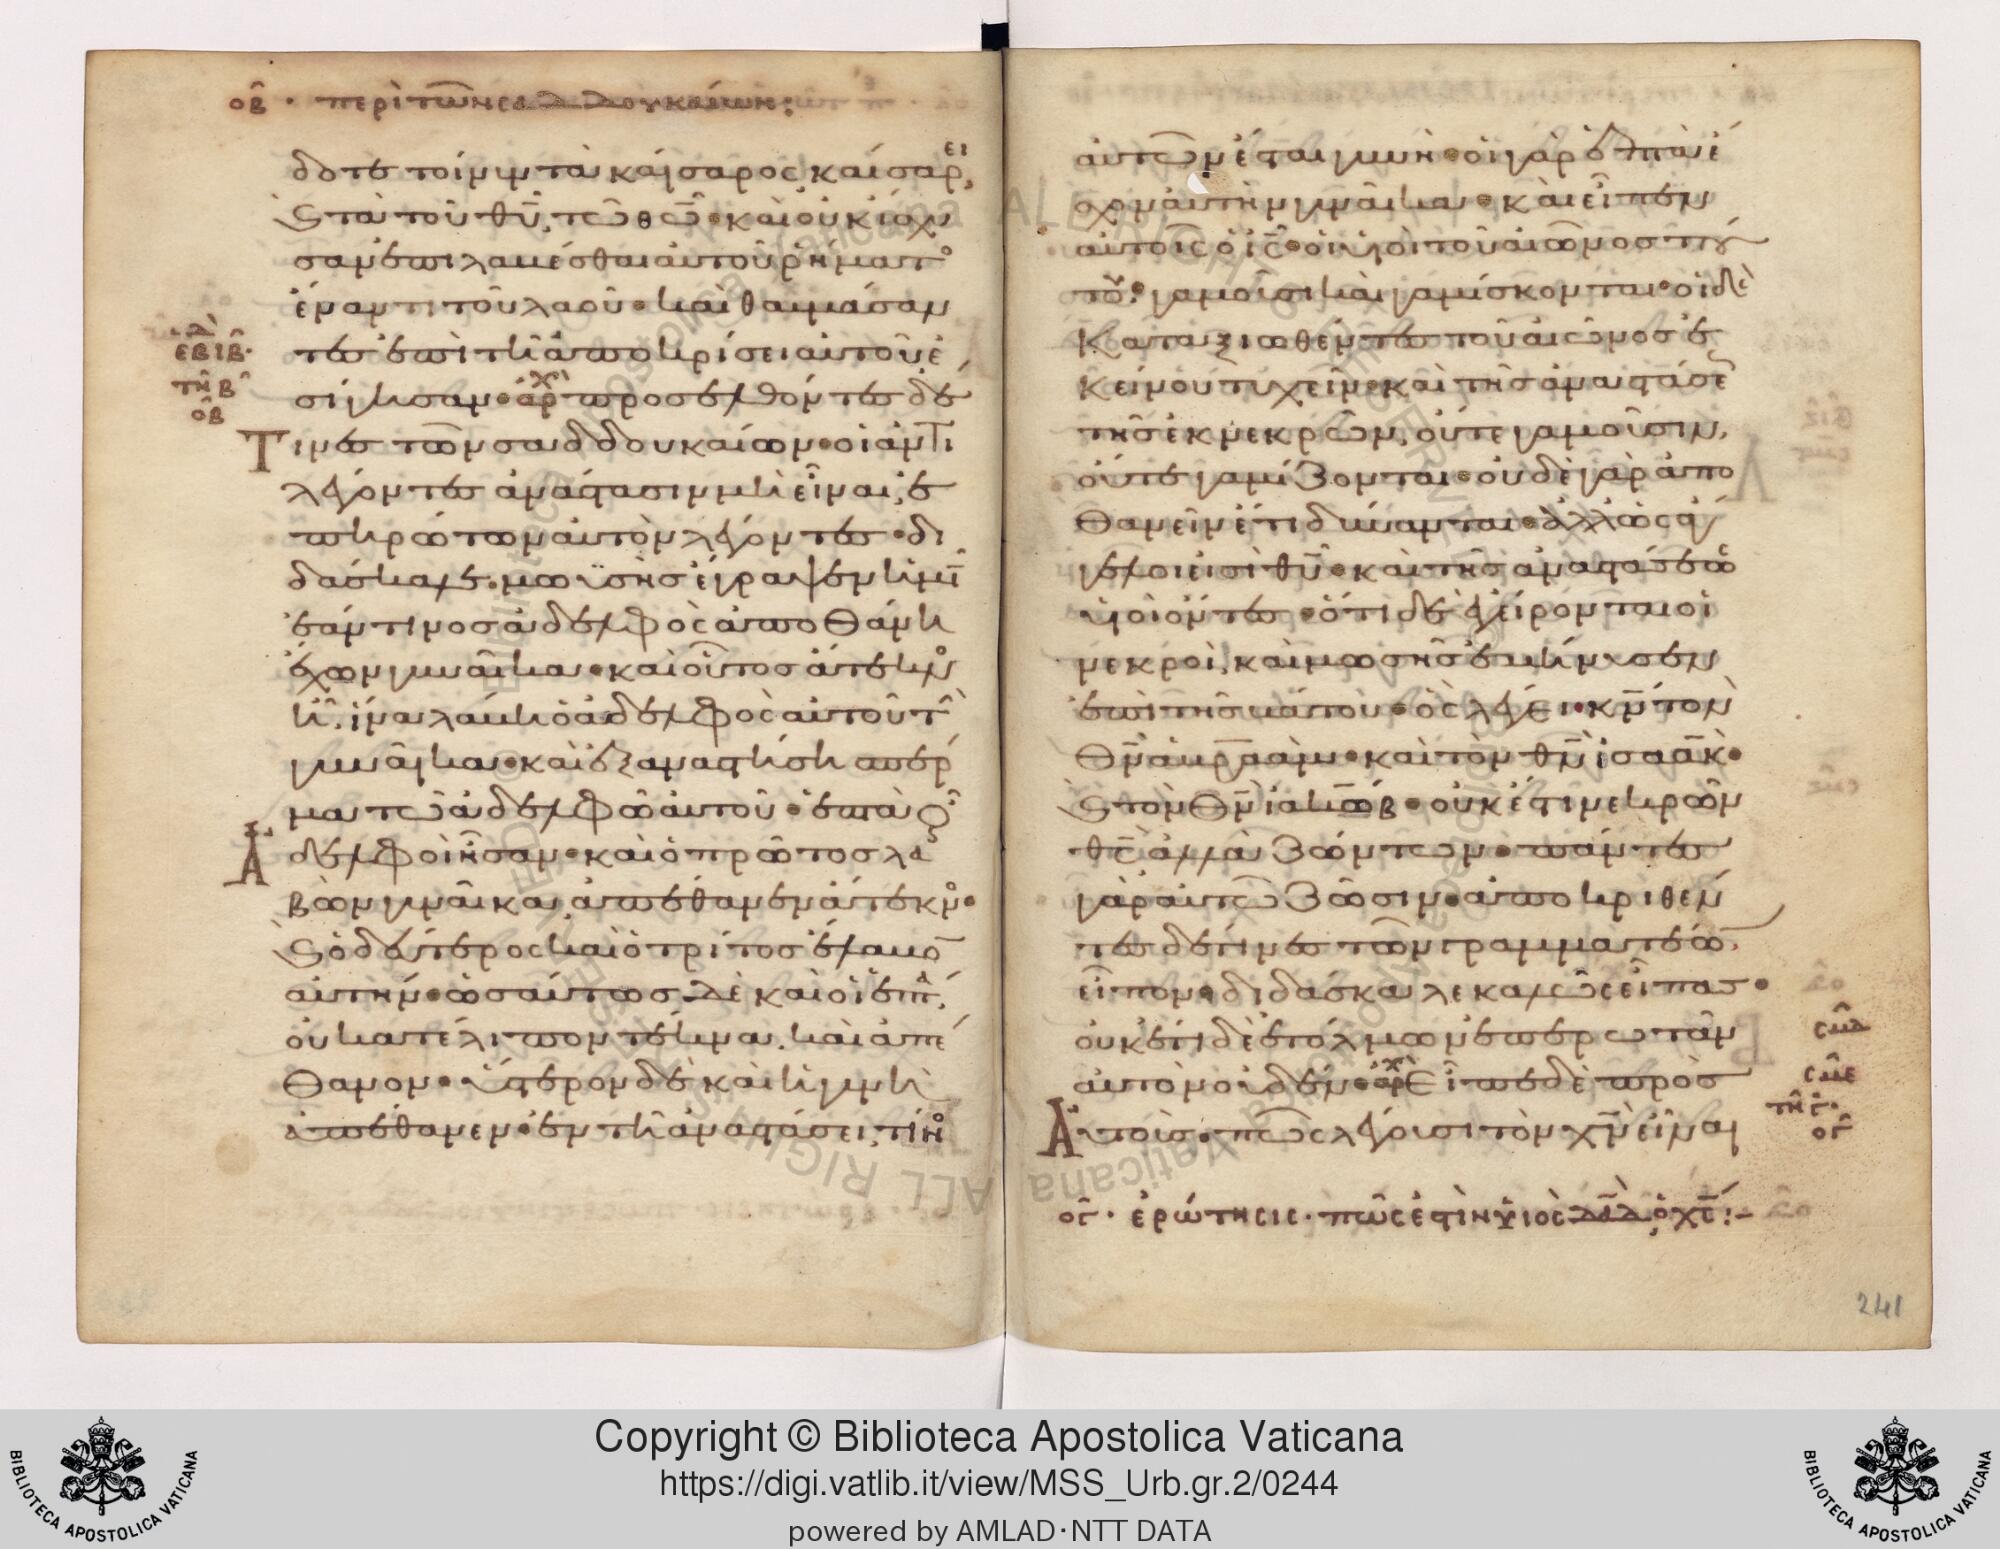 οβ · περὶ τῶν σαδδουκαίων:
δοτε τοίνυν τὰ καίσαρος καίσαρει,
ϗ τὰ τοῦ θυ, τῶ θῶ· καὶ οὐκ ἴσχυ
σαν ἐπιλαβέσθαι αὐτοῦ ῥήματο
ἐναντι τοῦ λαοῦ· καὶ θαυμάσαν
τες ἐπὶ τῆ ἀποκρίσει αὐτοῦ ἐ
σίγησαν· ἀρχ προσελθόντες δέ
Τινες τῶν σαδδουκαίων· οἱ ἀντι
λέγοντες ἀνάστασιν μὴ εἶναι, ἐ
πηρώτων αὐτὸν λέγοντες· δι
δάσκαλε· μωϋσῆς ἔγραψεν ἡμῖ
ἐάν τινος ἀδελφὸς ἀποθάνη
ἔχων γυναῖκα· καὶ οὗτος ἄτεκνο
ἦ, ἵνα λάβη ὁ ἀδελφὸς αὐτοῦ τὴ
γυναῖκα· καὶ ἐξαναστήση σπέρ
μα τῶ ἀδελφῶ αὐτοῦ· ἑπτὰ οῦ
Ἀδελφοὶ ἦσαν· καὶ ὁ πρῶτος λα
βὼν γυναῖκα ἀπέθανεν ἄτεκνο·
ϗ ὁ δεύτερος καὶ ὁ τρίτος ἔλαβο
αὐτήν· ὡσαύτως δὲ καὶ οἱ ἑπτ,
οὐ κατέλιπον τέκνα, καὶ ἀπέ
θανον· ὕστερον δὲ καὶ ἡ γυνὴ
ἀπέθανεν· ἐν τῆ ἀναστάσει, τίνο
εβ ιβ·
τῆ β
οβ
αὐτῶν ἔσται γυνή· οἱ γὰρ ἑπτὰ ἔ
σχον αὐτὴν γυναῖκα· καὶ εἶπεν
αὐτοῖς ὁ ις· οἱ υἱοὶ τοῦ αἰῶνος τού
του· γαμοῦσι καὶ γαμίσκονται· οἱ δὲ
Καταξιωθέντες τοῦ αἰῶνος ἐ
κείνου τυχεῖν· καὶ τῆς ἀναστάσε
τῆς ἐκ νεκρῶν, οὔτε γαμοῦσιν,
οὔτε γαμίζονται· οὐδὲ γὰρ ἀπο
θανεῖν ἔτι δύνανται· ἀλλ ὡς ἄγ
γελοι εἰσὶ θυ· καὶ τῆς ἀναστάσεω
υἱοὶ ὄντες· ὅτι δὲ ἐγείρονται οἱ
νεκροὶ, καὶ μωσῆς ἐμήνυσεν
ἐπὶ τῆς βάτου· ὡς λέγει· κν τὸν
θν ἀβραάμ· καὶ τὸν θν ἰσαάκ·
ϗ τὸν θν ἰακώβ· οὐκ ἔστι νεκρῶν
θς ἀλλὰ ζώντων· πάντες
γὰρ αὐτῶ ζῶσιν· ἀποκριθέν
τες δέ τινες τῶν γραμματέω,
εἶπον· διδάσκαλε καλῶς εἶπας·
οὐκέτι δὲ ἐτόλμων ἐπερωτᾶν
αὐτὸν οὐδέν· ἀρχ Εἶπε δὲ πρὸς
Αὐτοὺς· πῶς λέγουσι τὸν χν εἶναι
σμδ
σμε
τῆ γ·
ογ
ογ · ἐρώτησις · πῶς ἐστὶν υἱὸς δαδ, ὁ χς:-
241
Copyright © Biblioteca Apostolica Vaticana
https://digi.vatlib.it/view/MSS_Urb.gr.2/0244
powered by AMLAD·NTT DATA
BIBLIOTECA APOSTOLICA VATICANA
BIBLIOTECA APOSTOLICA VATICANA